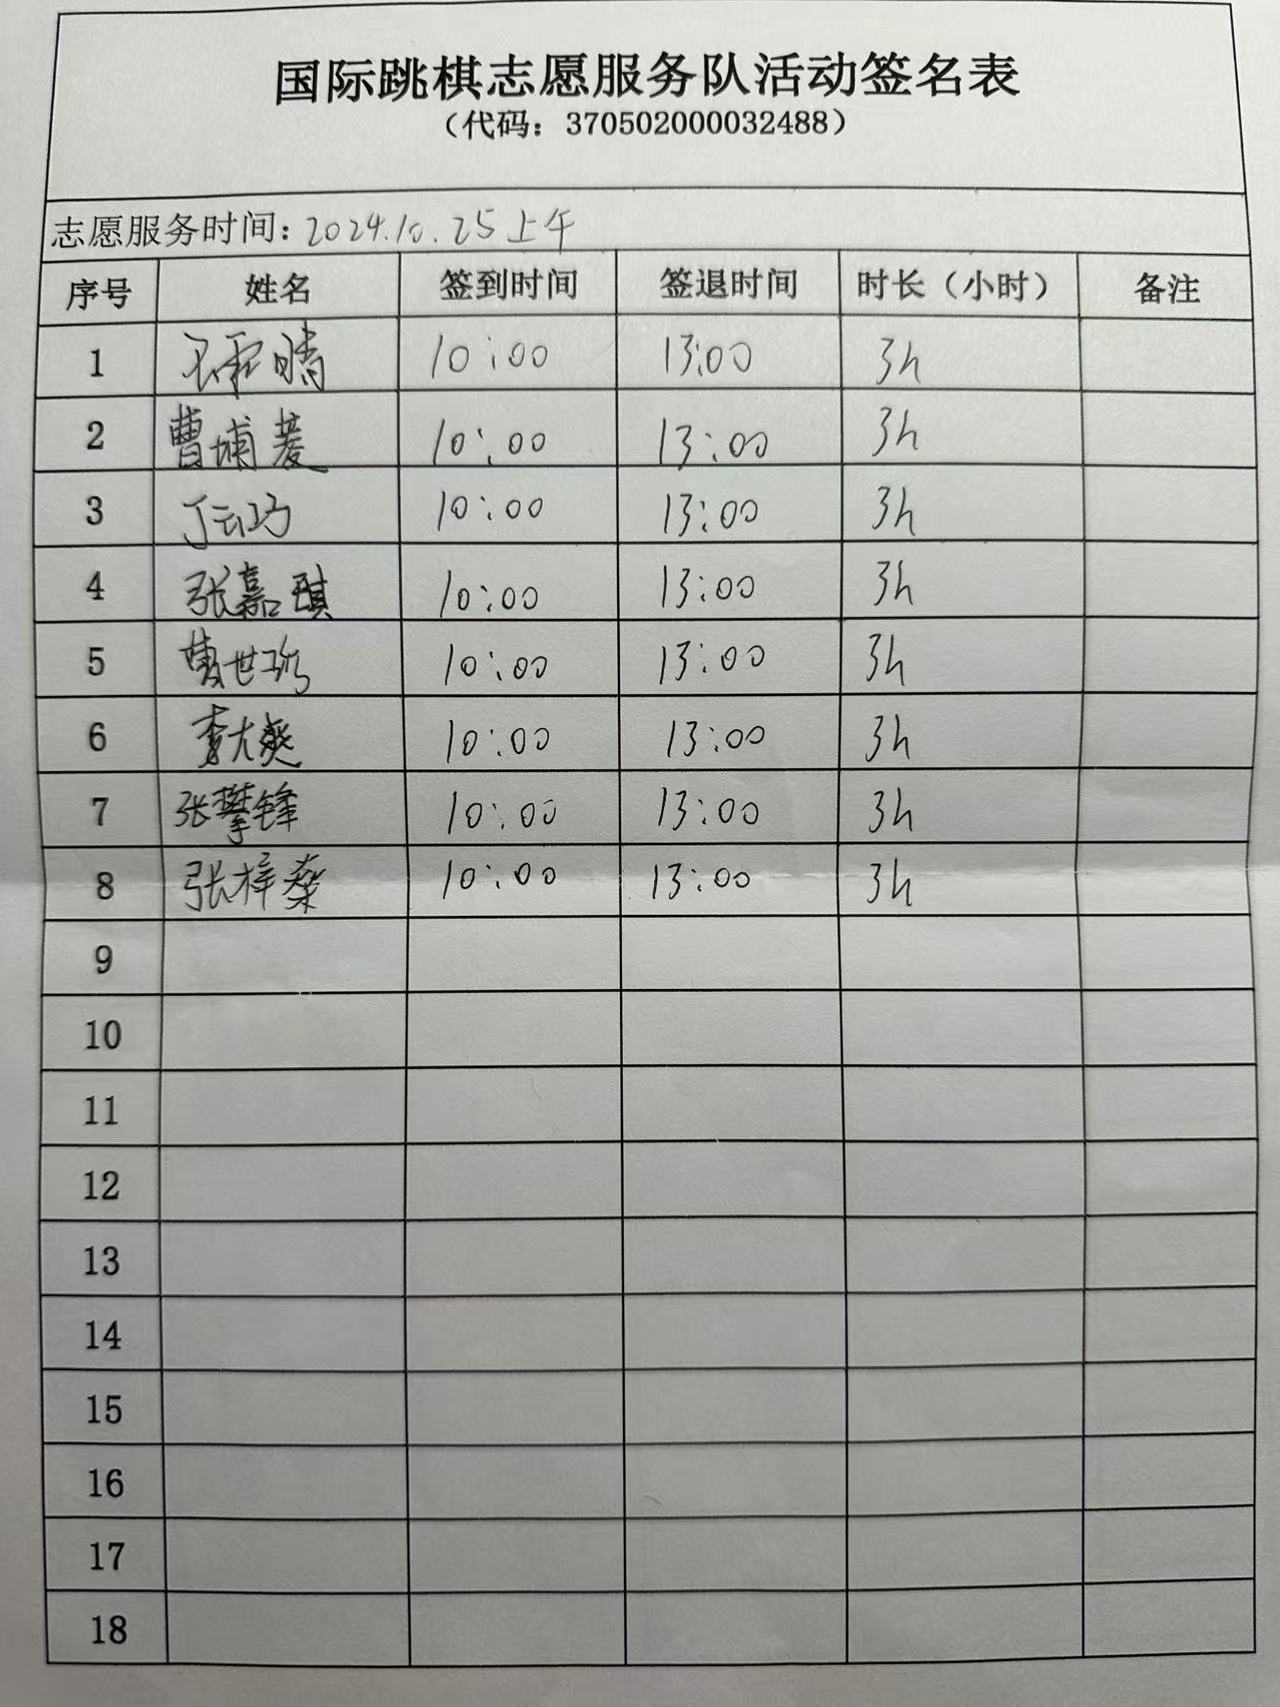 国际跳棋志愿服务队活动签名表
（代码：370502000032488）
志愿服务时间：2024.10.25上午
序号 姓名 签到时间 签退时间 时长（小时） 备注
1 晴 10:00 13:00 3h
2 曹埔菱 10:00 13:00 3h
3 丁云巧 10:00 13:00 3h
4 张嘉琪 10:00 13:00 3h
5 曹世 10:00 13:00 3h
6 李大 10:00 13:00 3h
7 张攀锋 10:00 13:00 3h
8 张梓桑 10:00 13:00 3h
9
10
11
12
13
14
15
16
17
18